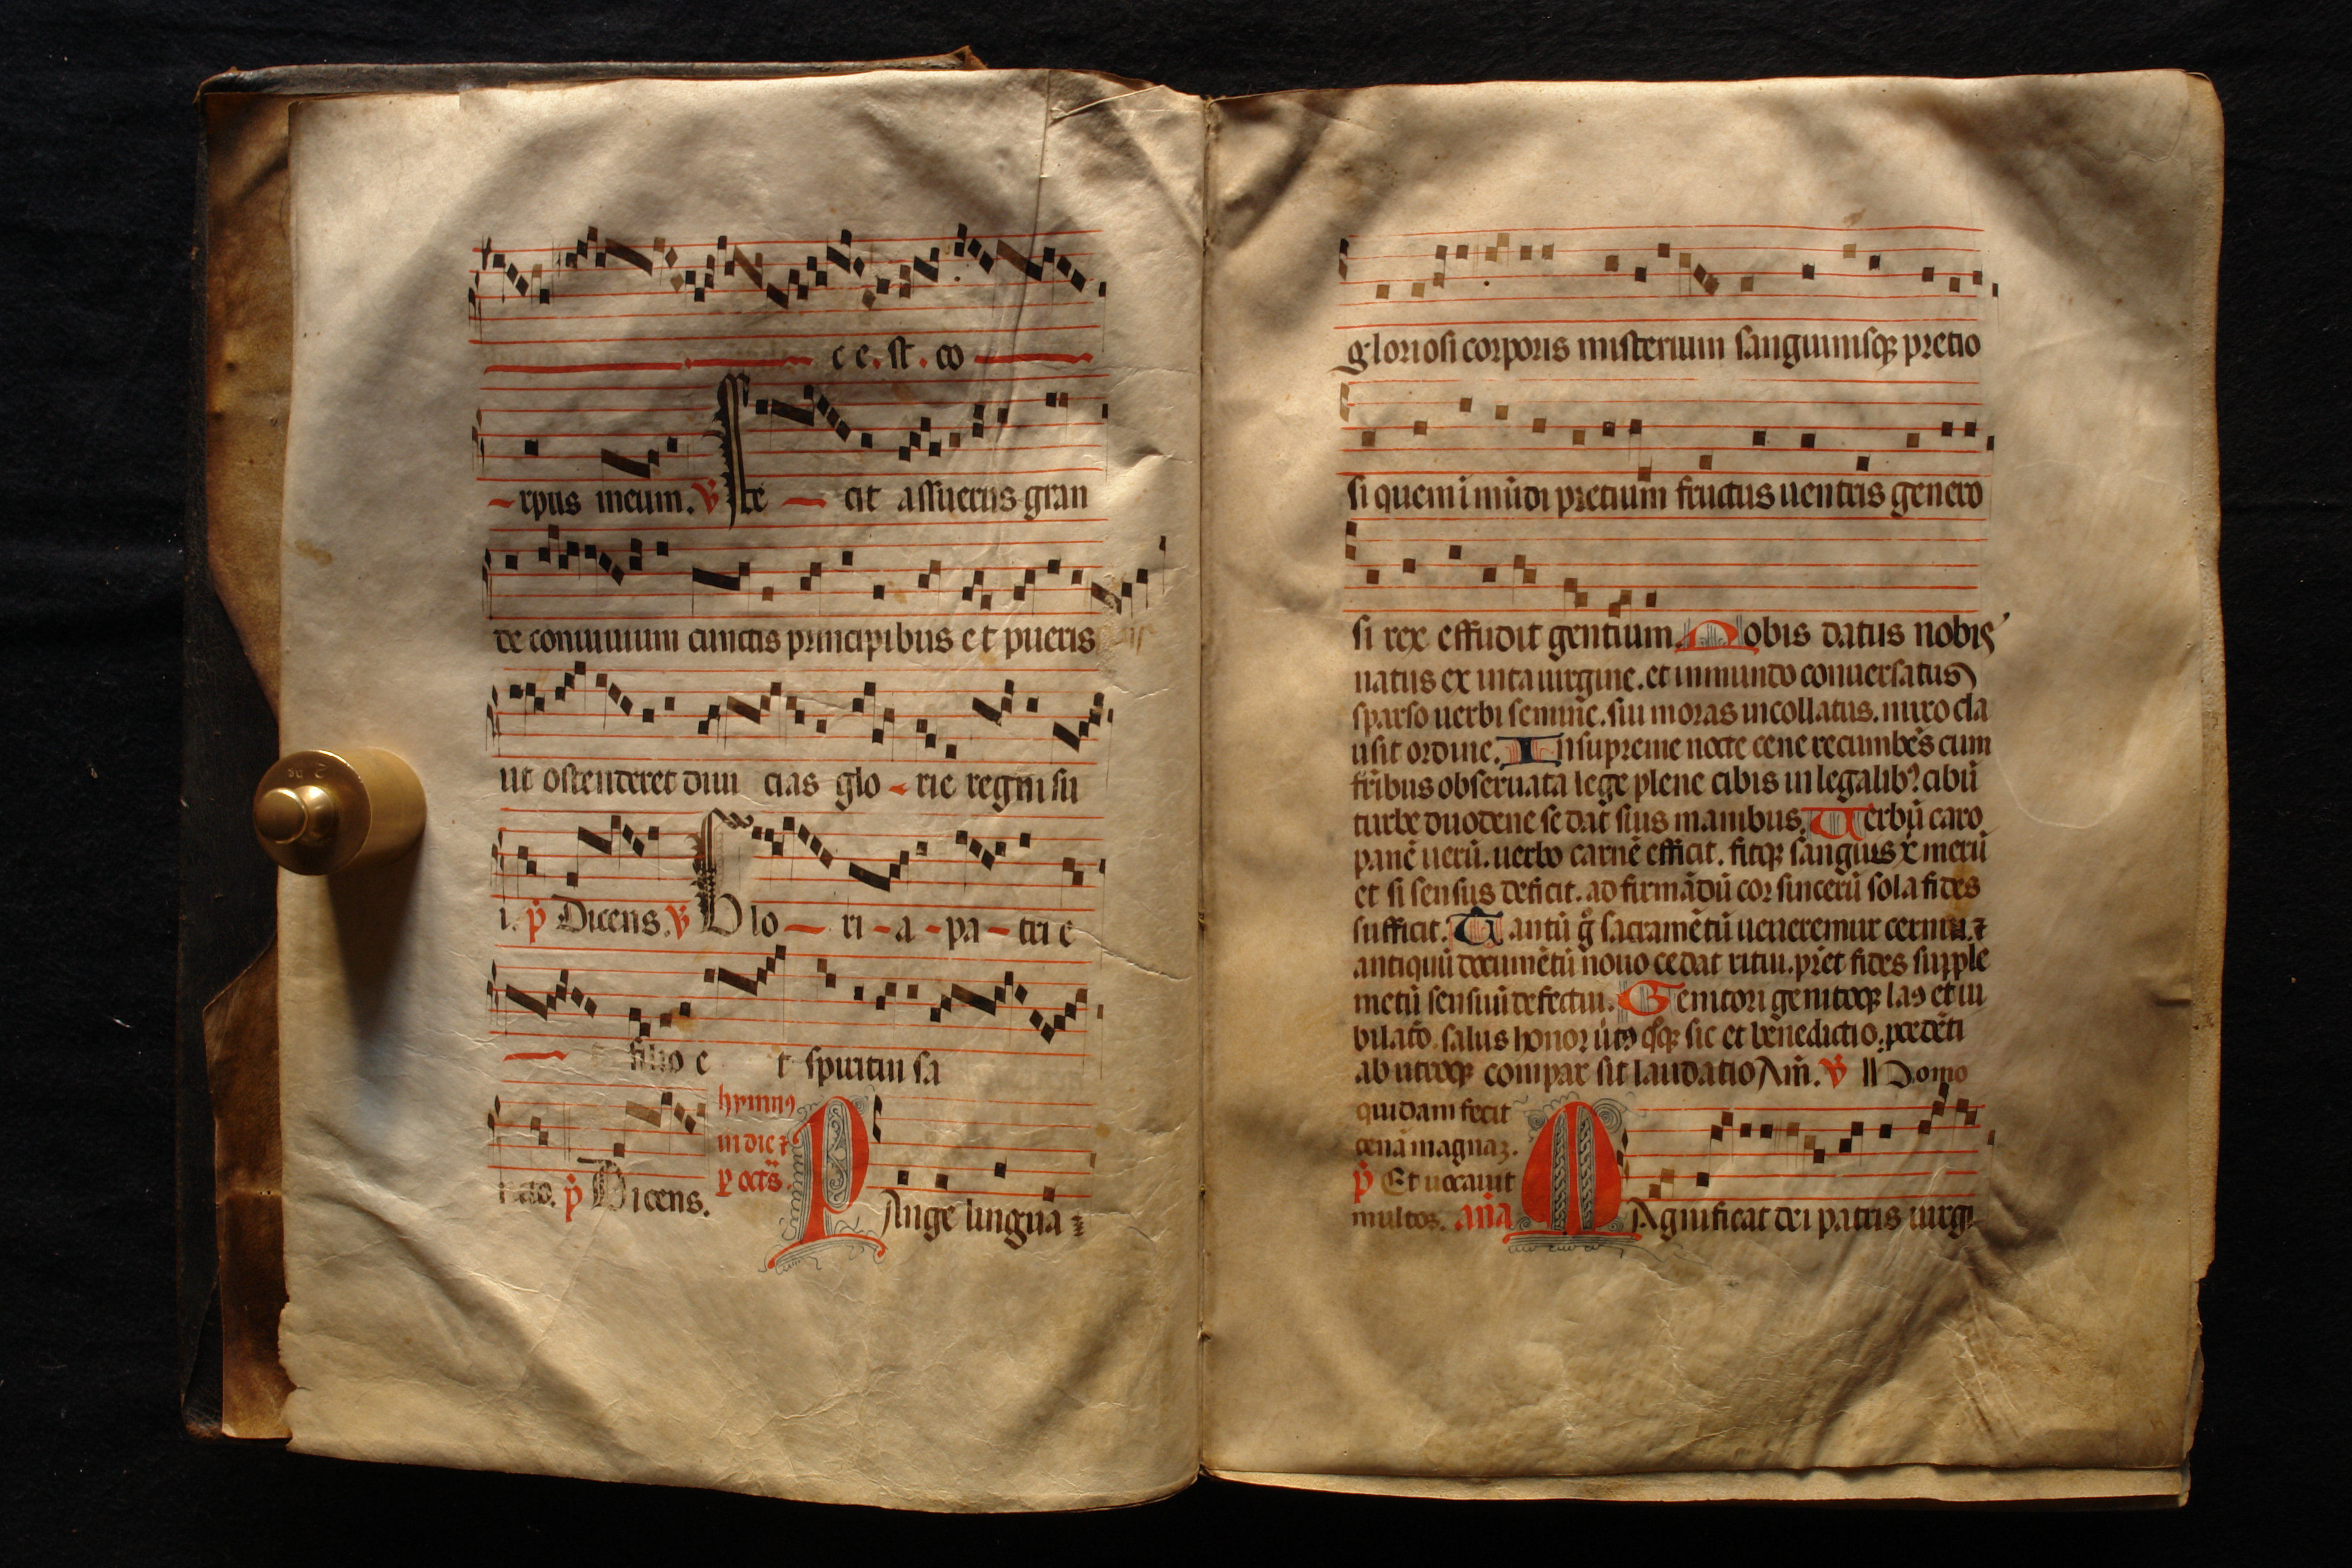 c e. st. co
rpus meum. ℣ Fe cit assuerus gran
de conuiuium cunctis principibus et pueris
ut ostenderet diui cias glo rie regni su
i. p̄ Dicens. ℣ Glo ri a pa tri e
filio e t spiritui sa
hymnꝰ
in die ⁊
p̱ octs̄.
p̄ Dicens. PAnge lingua
gloriosi corporis misterium sanguinisqꝫ pretio
si quem ī mūdi pretium fructus uentris genero
si rex effudit gentium. Nobis datus nobis
natus ex intauirgine. et inmundo conuersatus
sparso uerbi semine. sui moras incollatus. miro cla
usit ordine. In supreme nocte cene recumbēs cum
fr̄ibus obseruata lege plene cibis in legalibꝰ cibū
turbe duodene se dat suis manibus. Uerbū caro
panē uerū. uerbo carnē efficit. fitqꝫ sanguis x̄ merū
et si sensus deficit. ad firmādū cor sincerū sola fides
sufficit. Tantū gͦ sacramētū ueneremur cernui. ⁊
antiquū documētū nouo cedat ritui. pret fides supple
metū sensuū defectui. Genitori genitoqꝫ laꝰ et iu
bilatō. salus honor uirtꝰ qͦqꝫ sic et benedictio. pcedēti
ab utroqꝫ compar sit laudatio Am̄. ℣ Homo
quidam fecit
cenā magnaꝫ.
p̄ Et uocauit
multos. aña MAgnificat dei patris uirgi